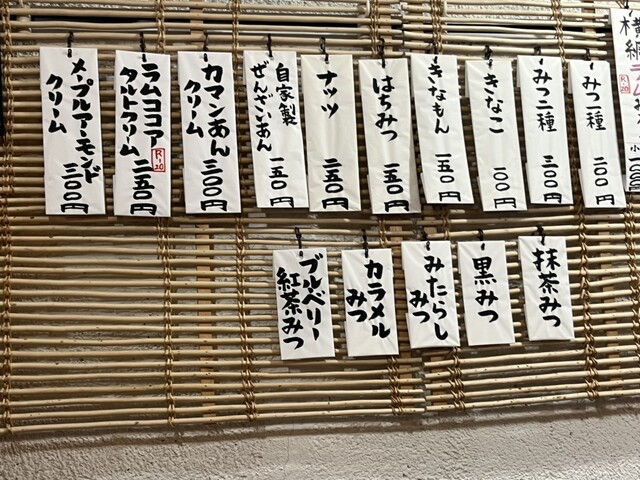 みつ一種
二〇〇円
みつ二種
三〇〇円
きなこ
一〇〇円
きなもん
一五〇円
はちみつ
一五〇円
ナッツ
二五〇円
自家製
ぜんざいあん
一五〇円
カマンあん
クリーム
三〇〇円
ラムココア
タルトクリーム
二五〇円
R-20
メープルアーモンド
クリーム
三〇〇円
抹茶みつ
黒みつ
みたらし
みつ
カラメル
みつ
ブルーベリー
紅茶みつ